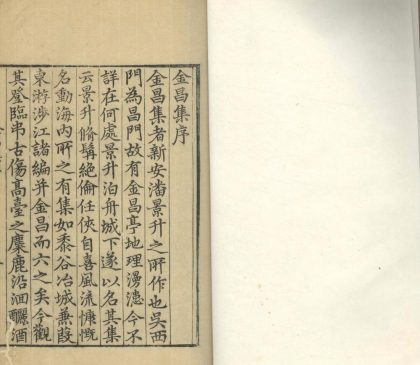 金昌集序
金昌集者新安潘景升之所作也吳西
門為昌門故有金昌亭地理漫漶今不
詳在何處景升泊舟城下遂以名其集
云景升脩髯絕倫任俠自喜風流慷慨
名動海內所之有集如黍谷冶城蒹葭
東游涉江諸編并金昌而六之矣今觀
其登臨弔古傷高臺之麋鹿沿洄釃酒